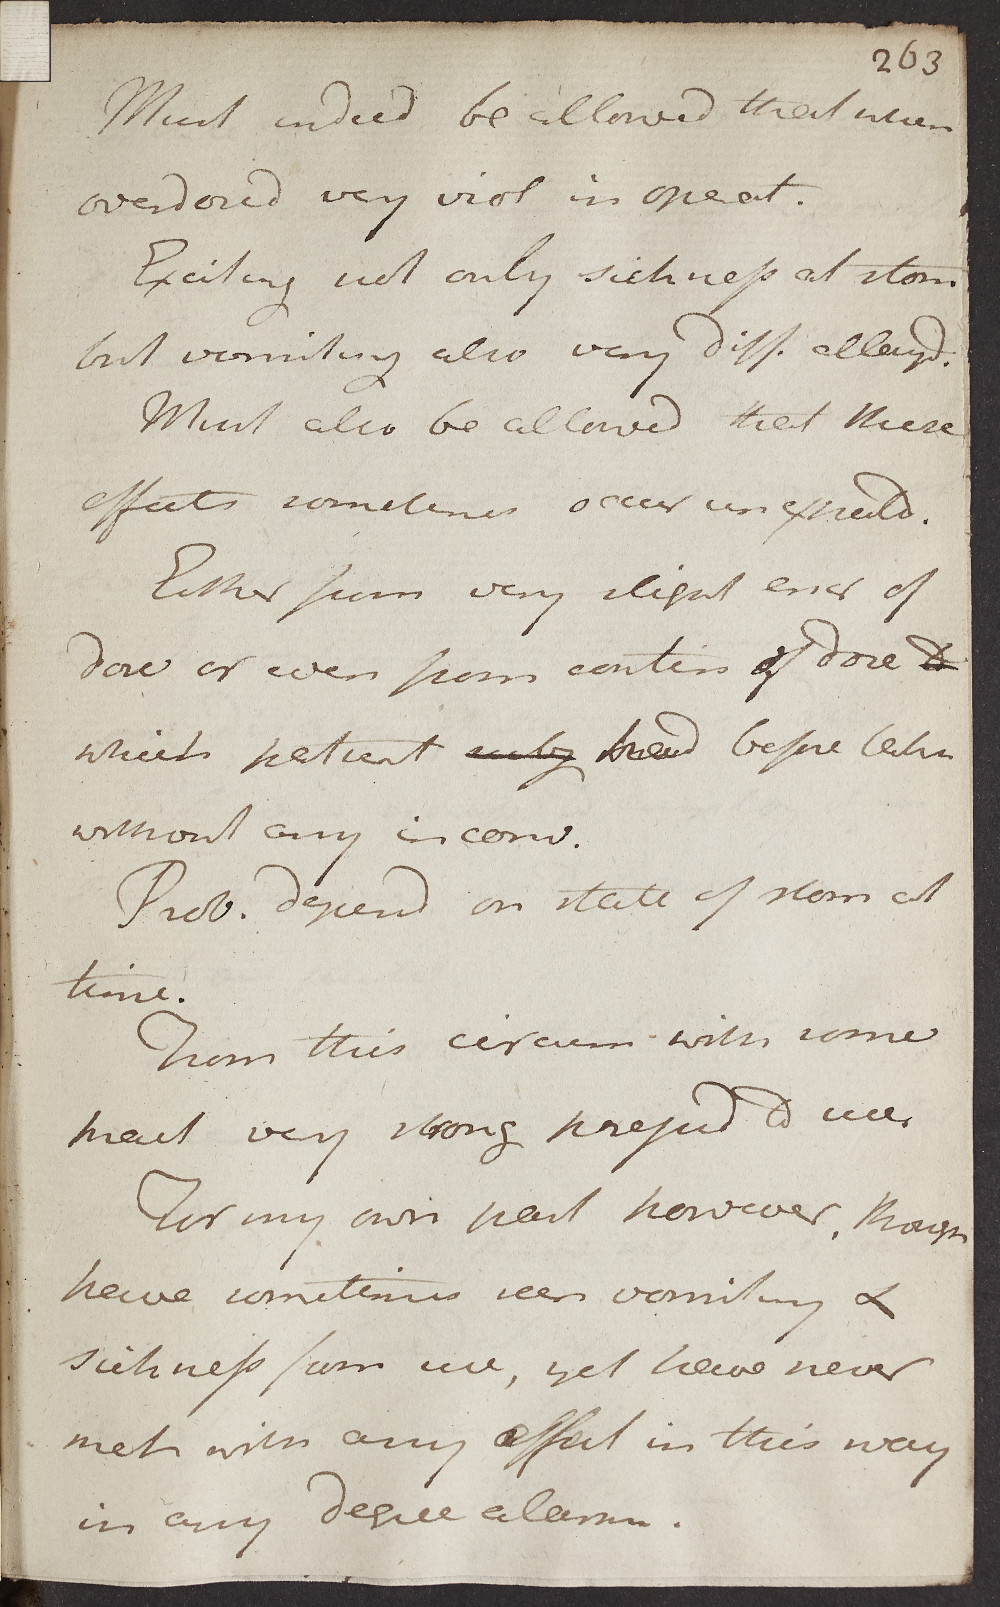 263
Must indeed be allowed that when
overdosed very viol in operat.
Exciting not only sickness at stom
but vomiting also very diff. allayd.
Must also be allowed that these
effects sometimes occur unexpectd.
Either from very slight error of
dose or even from contin of dose to
which patient had before taken
without any inconv.
Prob. depend on state of stom at
time.
From this circum with some
pract very strong prejud to use
For my own part however, though
have sometimes seen vomiting &
sickness from use, yet have never
met with any effect in this way
in any degree alarm.